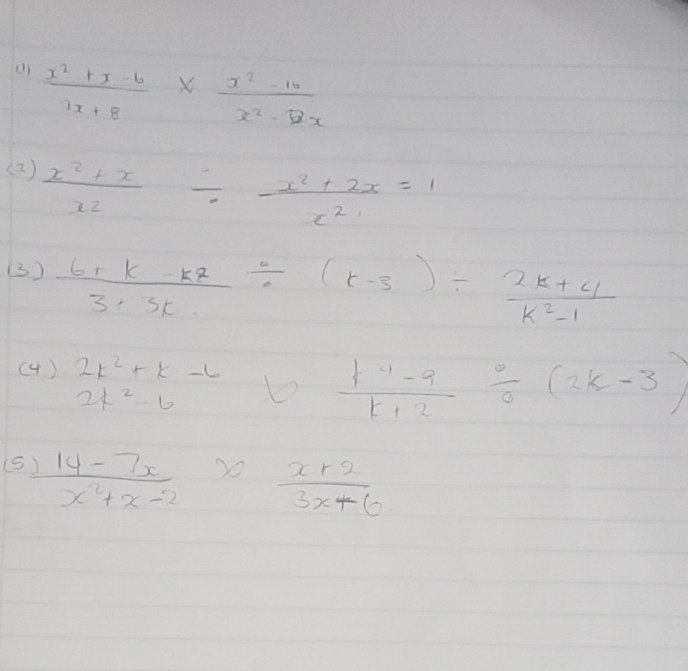 (1) x² + x - 6 / 2x + 8 × x² - 16 / x² - x
(2) x² + x / x2 ÷ x² + 2x / x² = 1
(3) 6 + k - k2 / 3 + 3k ÷ (k-3) ÷ 2k + 4 / k² - 1
(4) 2k² + k - 6 / 2k² - 6 × k⁴ - 9 / k + 2 ÷ (2k - 3)
(5) 14 - 7x / x² + x - 2 × x + 2 / 3x + 6